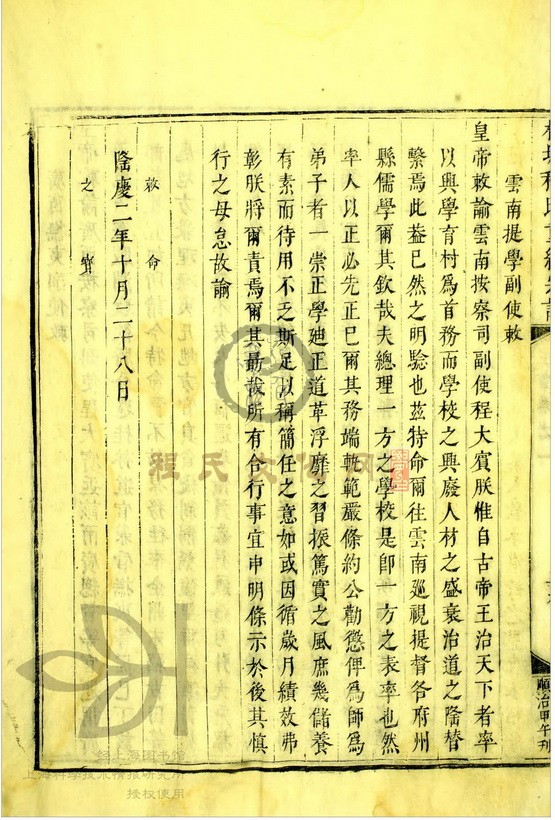 雲南提學副使敕
皇帝敕諭雲南按察司副使程大賓朕惟自古帝王治天下者率
以興學育材為首務而學校之興廢人材之盛衰治道之隆替
繫焉此葢已然之明驗也茲特命爾往雲南廵視提督各府州
縣儒學爾其欽哉夫總理一方之學校是卽一方之表率也然
率人以正必先正巳爾其務端軌範嚴條約公勸懲俾為師為
弟子者一崇正學廸正道革浮靡之習振篤實之風庶幾儲養
有素而待用不乏斯足以稱簡任之意如或因循歲月績效弗
彰朕將爾責焉爾其勗哉所有合行事宜申明條示於後其慎
行之毋怠故諭
敕命
隆慶二年十月二十八日
之寶
順治甲午刊
程氏文化网
上海图书馆
上海科学技术情报研究所
授权使用